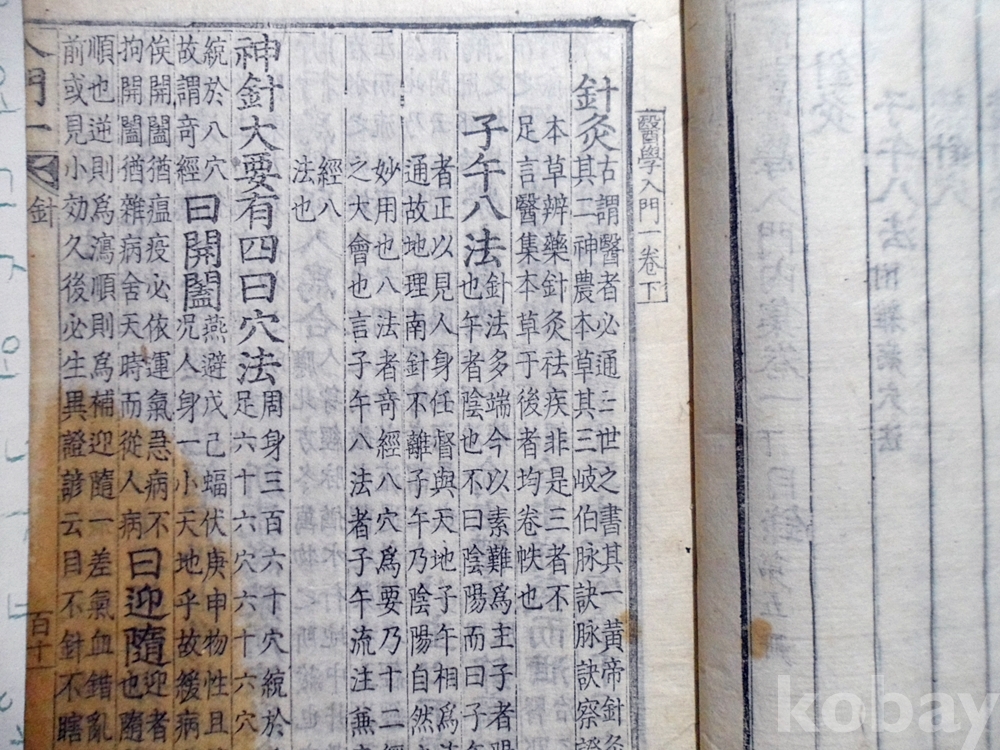 醫學入門一卷下
針灸
古謂醫者必通三世之書其一黃帝針灸
其二神農本草其三岐伯脉訣脉訣察證
本草辨藥針灸祛疾非是三者不
足言醫集本草于後者均卷帙也
子午八法
針法多端今以素難爲主子者陽
也午者陰也不曰陰陽而曰子午
者正以見人身任督與天地子午相爲
通故地理南針不離子午乃陰陽自然
妙用也八法者奇經八穴爲要乃十二經
之大會也言子午八法者子午流注兼
經八
法也
神針大要有四曰穴法
周身三百六十穴統於
足六十六穴六十六穴
統於八穴
故謂奇經
曰開闔
燕避戊己蝠伏庚申物性且
況人身一小天地乎故緩病
俟開闔猶瘟疫必依運氣急病不
拘開闔猶雜病舍天時而從人病
曰迎隨
迎者
也隨
順也逆則爲瀉順則爲補迎隨一差氣血錯亂
前或見小効久後必生異證諺云目不針不瞎
入門一
針
百十
kobay